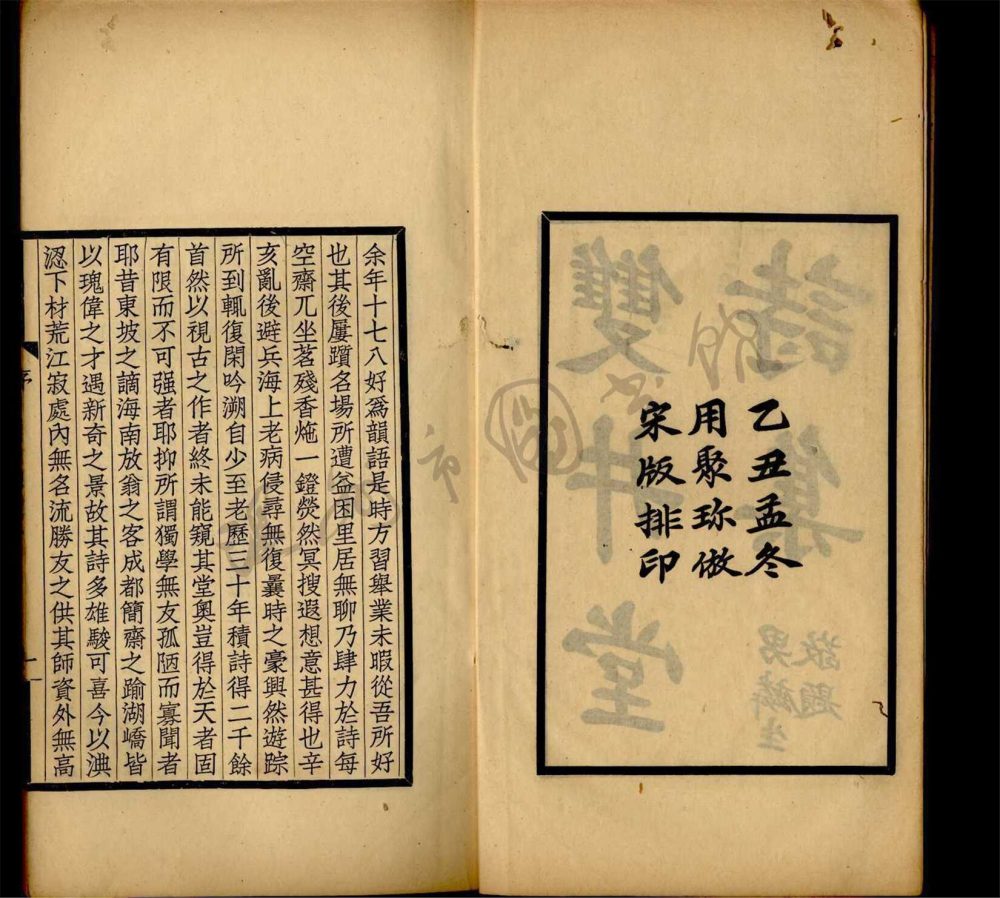 乙丑孟冬
用聚珍倣
宋版排印
余年十七八好爲韻語是時方習舉業未暇從吾所好
也其後屢躓名場所遭益困里居無聊乃肆力於詩每
空齋兀坐茗殘香炧一鐙熒然冥搜遐想意甚得也辛
亥亂後避兵海上老病侵尋無復曩時之豪興然遊踪
所到輒復閑吟溯自少至老歷三十年積詩得二千餘
首然以視古之作者終未能窺其堂奧豈得於天者固
有限而不可强者耶抑所謂獨學無友孤陋而寡聞者
耶昔東坡之謫海南放翁之客成都簡齋之踰湖嶠皆
以瑰偉之才遇新奇之景故其詩多雄駿可喜今以㳠
涊下材荒江寂處內無名流勝友之供其師資外無高